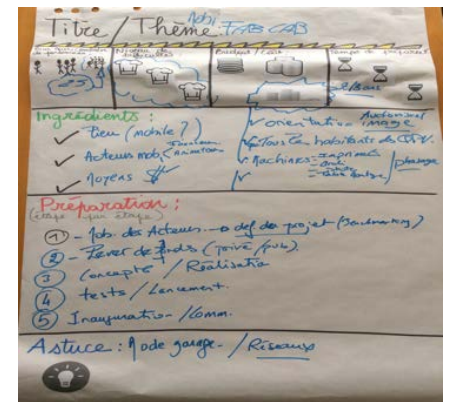 Titre / Thème : Mobi FAB CAB
Niveau de
Budget / Coût
Temps de
Ingrédients :
Lieu (mobile ?)
Acteurs mob.
Moyens $
orientation Audiovisuel
image
Tous les habitants du
Machines
Préparation :
(étape par étape)
① - Mob. des Acteurs → def des projet (Benchmarking)
② - Lever de fonds (privé / pub).
③ Concepts / Réalisatio
④ tests / Lancement.
⑤ Inauguration - /Comm.
Astuce : Mode garage - / Réseaux